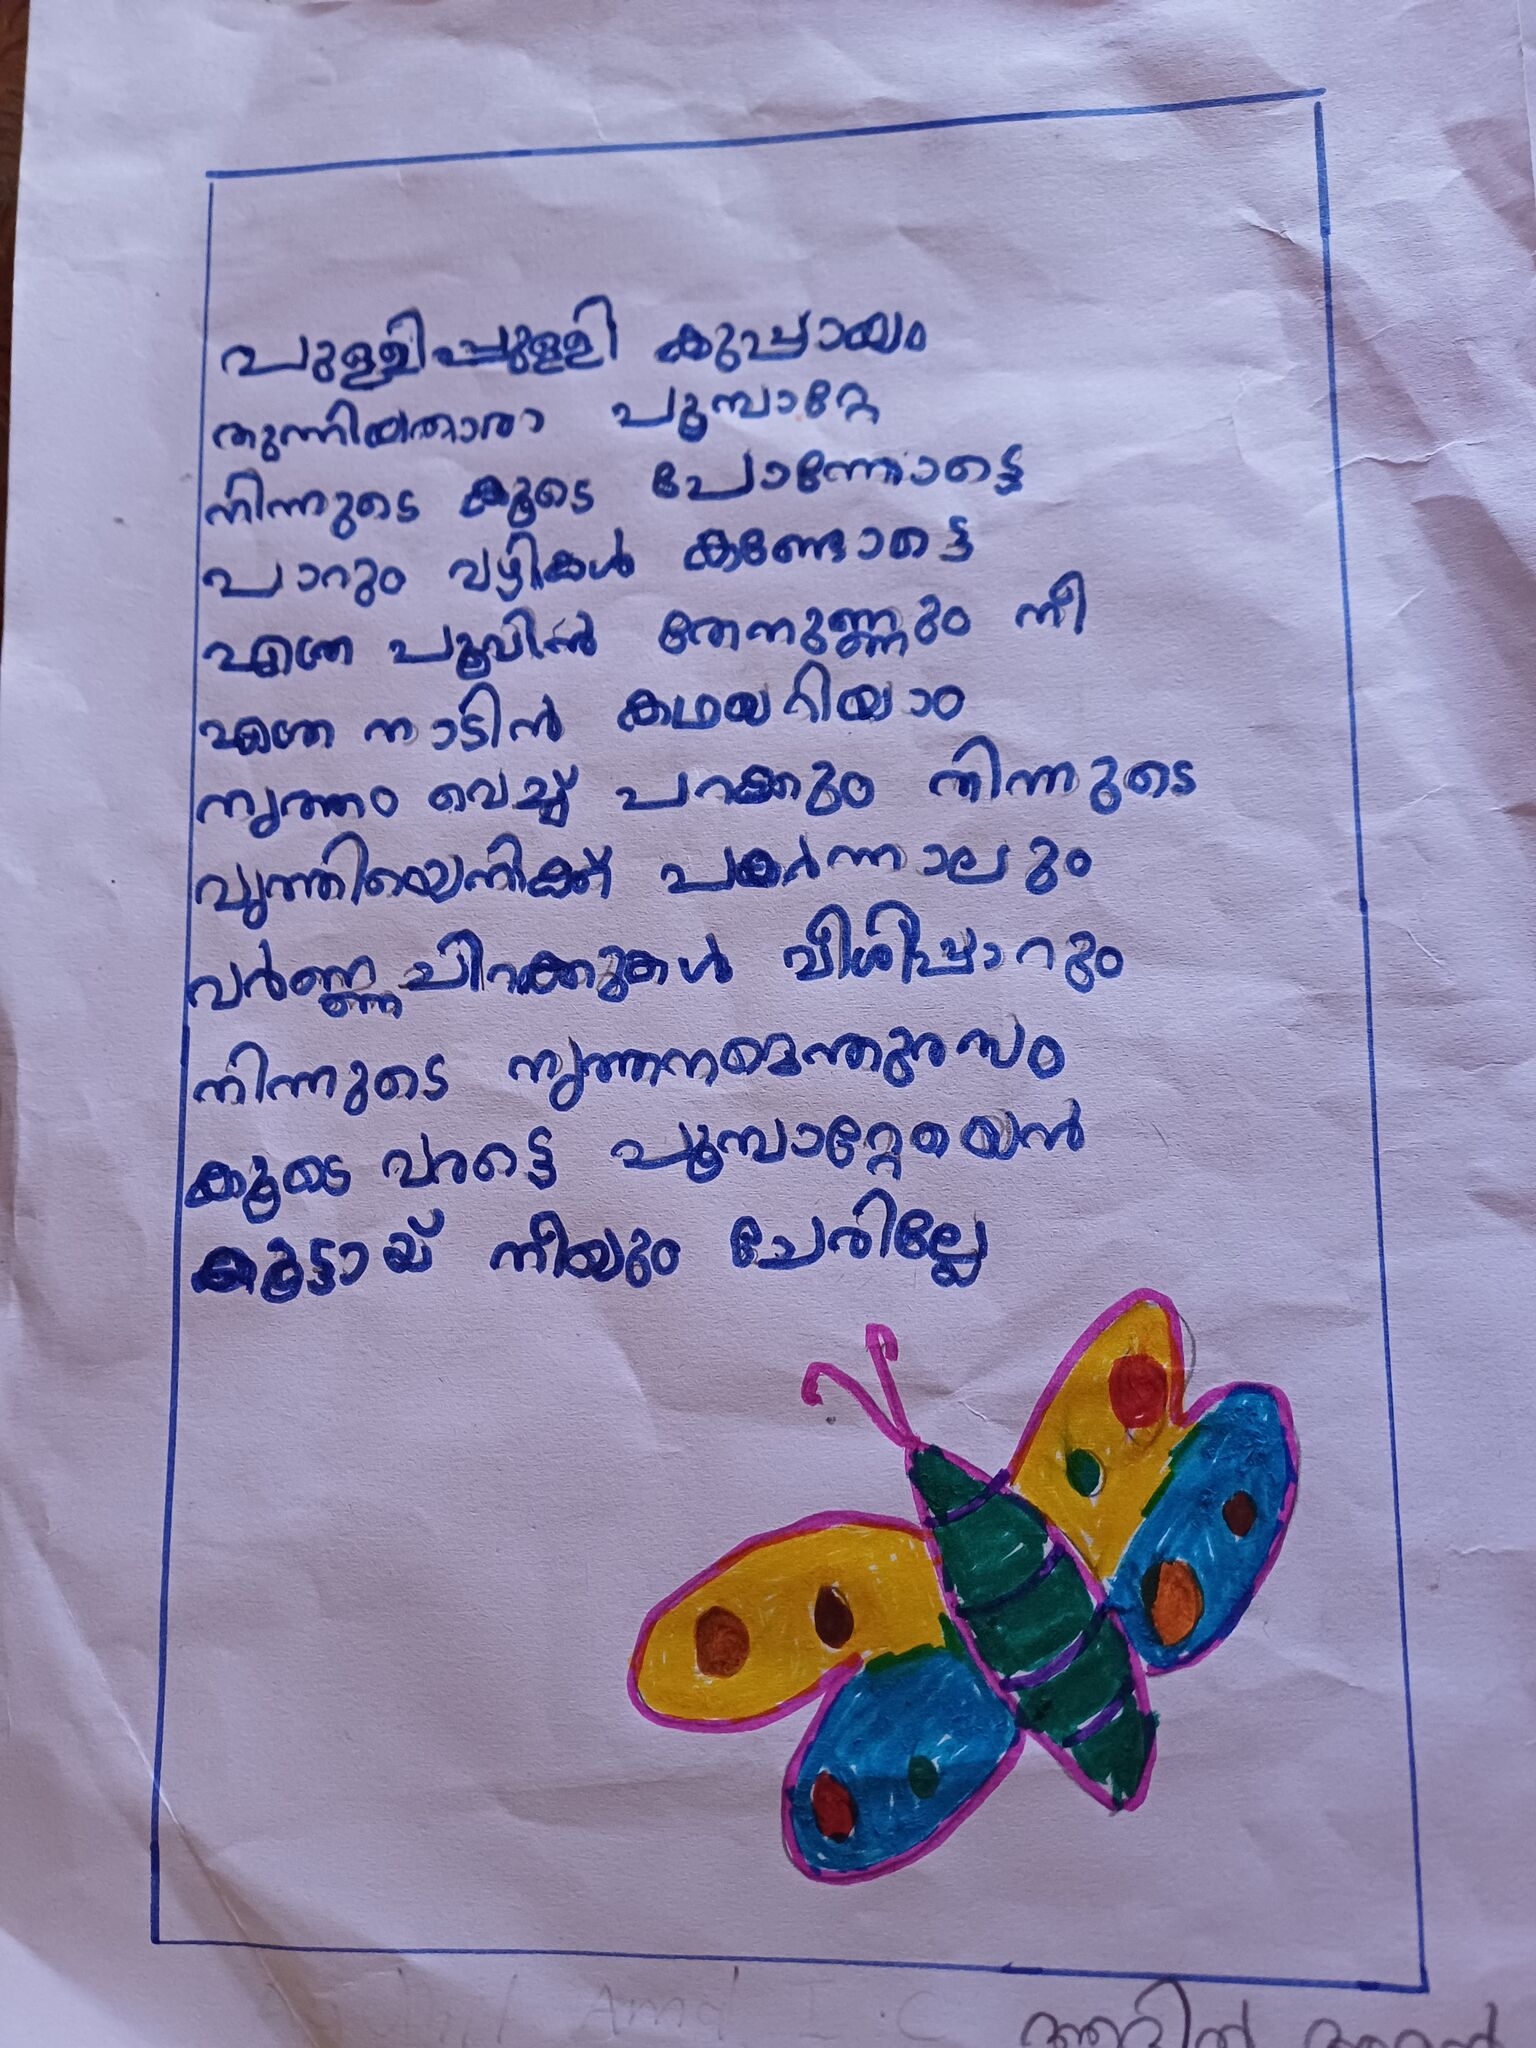 പുള്ളിപ്പുള്ളി കുപ്പായം
തുന്നിയതാരാ പൂമ്പാറ്റേ
നിന്നുടെ കൂടെ പോന്നോട്ടെ
പാറും വഴികൾ കണ്ടോട്ടെ
എത്ര പൂവിൻ തേനുണ്ണും നീ
എത്ര നാടിൻ കഥയറിയാം
നൃത്തം വെച്ച് പറക്കും നിന്നുടെ
വൃത്തിയെനിക്ക് പകർന്നാലും
വർണ്ണചിറക്കുകൾ വീശിപ്പാറും
നിന്നുടെ നൃത്തനമെന്തുരസം
കൂടെ വരട്ടെ പൂമ്പാറ്റേയെൻ
കൂട്ടായ് നീയും ചേരില്ലേ